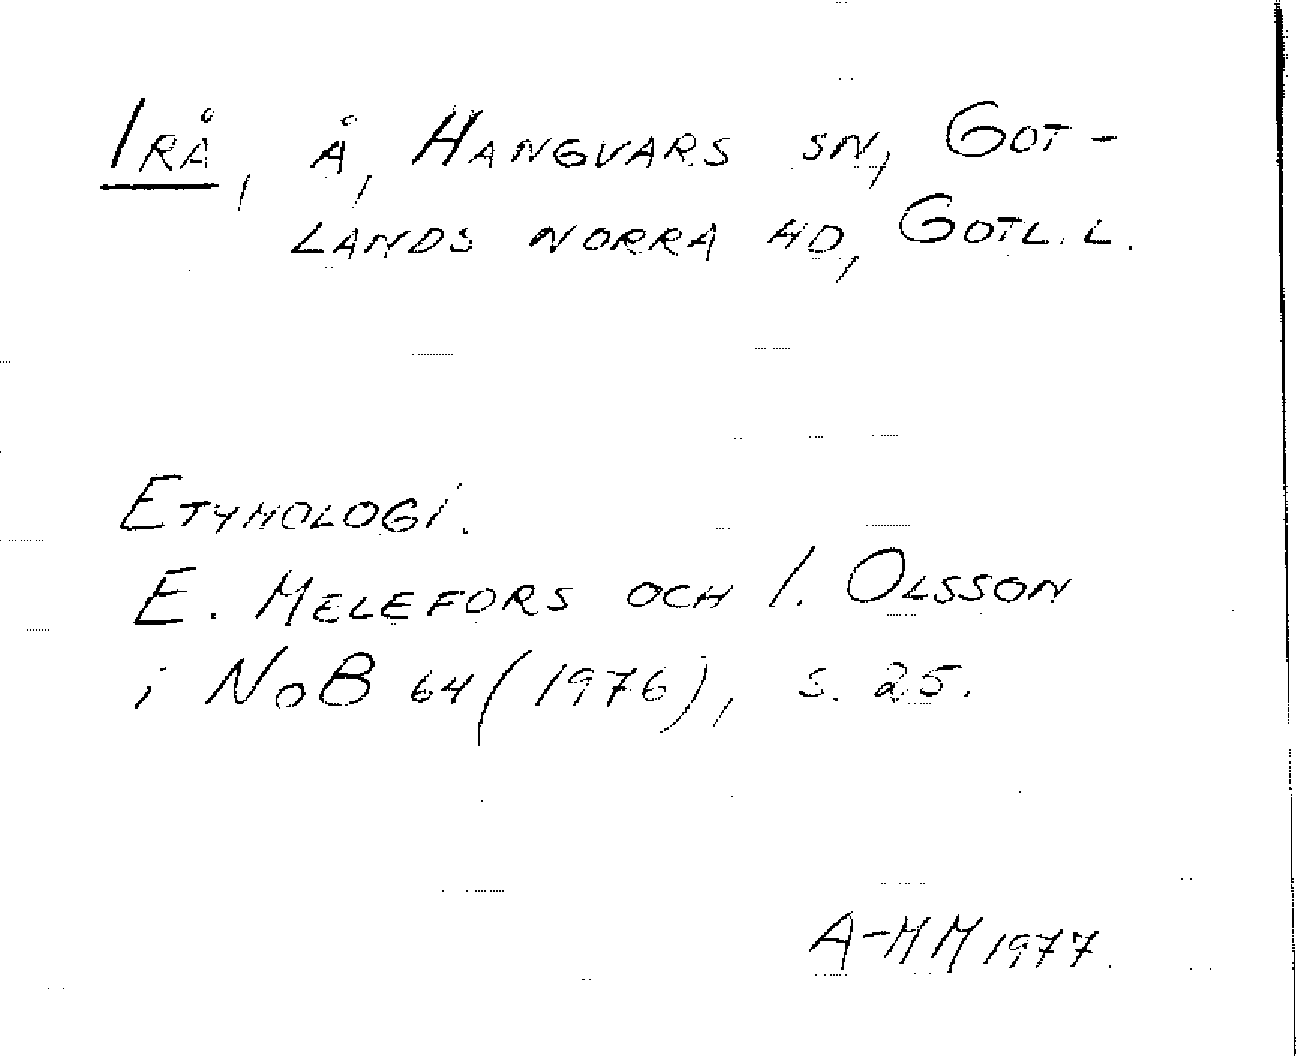 Irå, å, Hangvars sn, Got-
lands norra hd, Gotl. l.
Etymologi.
E. Melefors och I. Olsson
i NoB 64 (1976), s. 25.
A-MM 1977.